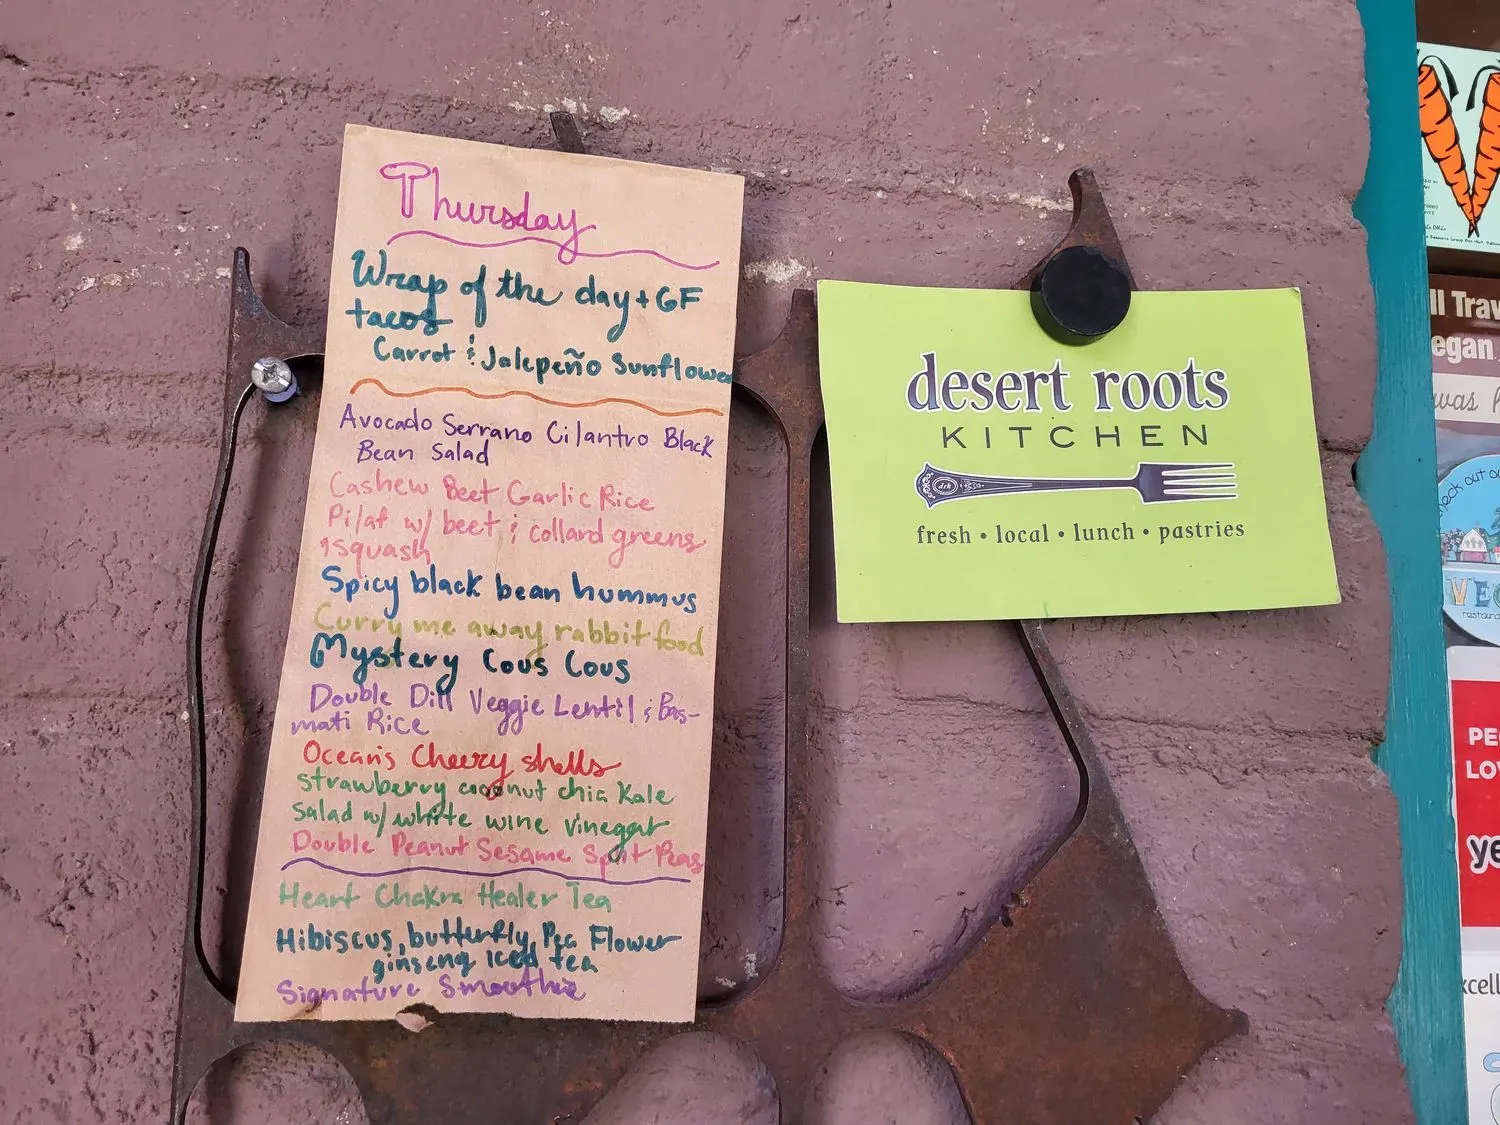 Thursday
Wrap of the day + GF
tacos
Carrot & Jalepeño Sunflower
Avocado Serrano Cilantro Black
Bean Salad
Cashew Beet Garlic Rice
Pilaf w/ beet & collard greens
& squash
Spicy black bean hummus
Curry me away rabbit food
Mystery Cous Cous
Double Dill Veggie Lentil & Bas-
mati Rice
Ocean's Cheezy shells
Strawberry coconut chia Kale
Salad w/ white wine vinegar
Double Peanut Sesame Split Peas
Heart Chakra Healer Tea
Hibiscus, butterfly, Pea Flower
ginseng iced tea
Signature Smoothie
desert roots
KITCHEN
drk
fresh • local • lunch • pastries
ll Trav
egan
was
eck out ou
VE
restaura
PE
LO
ye
xcell